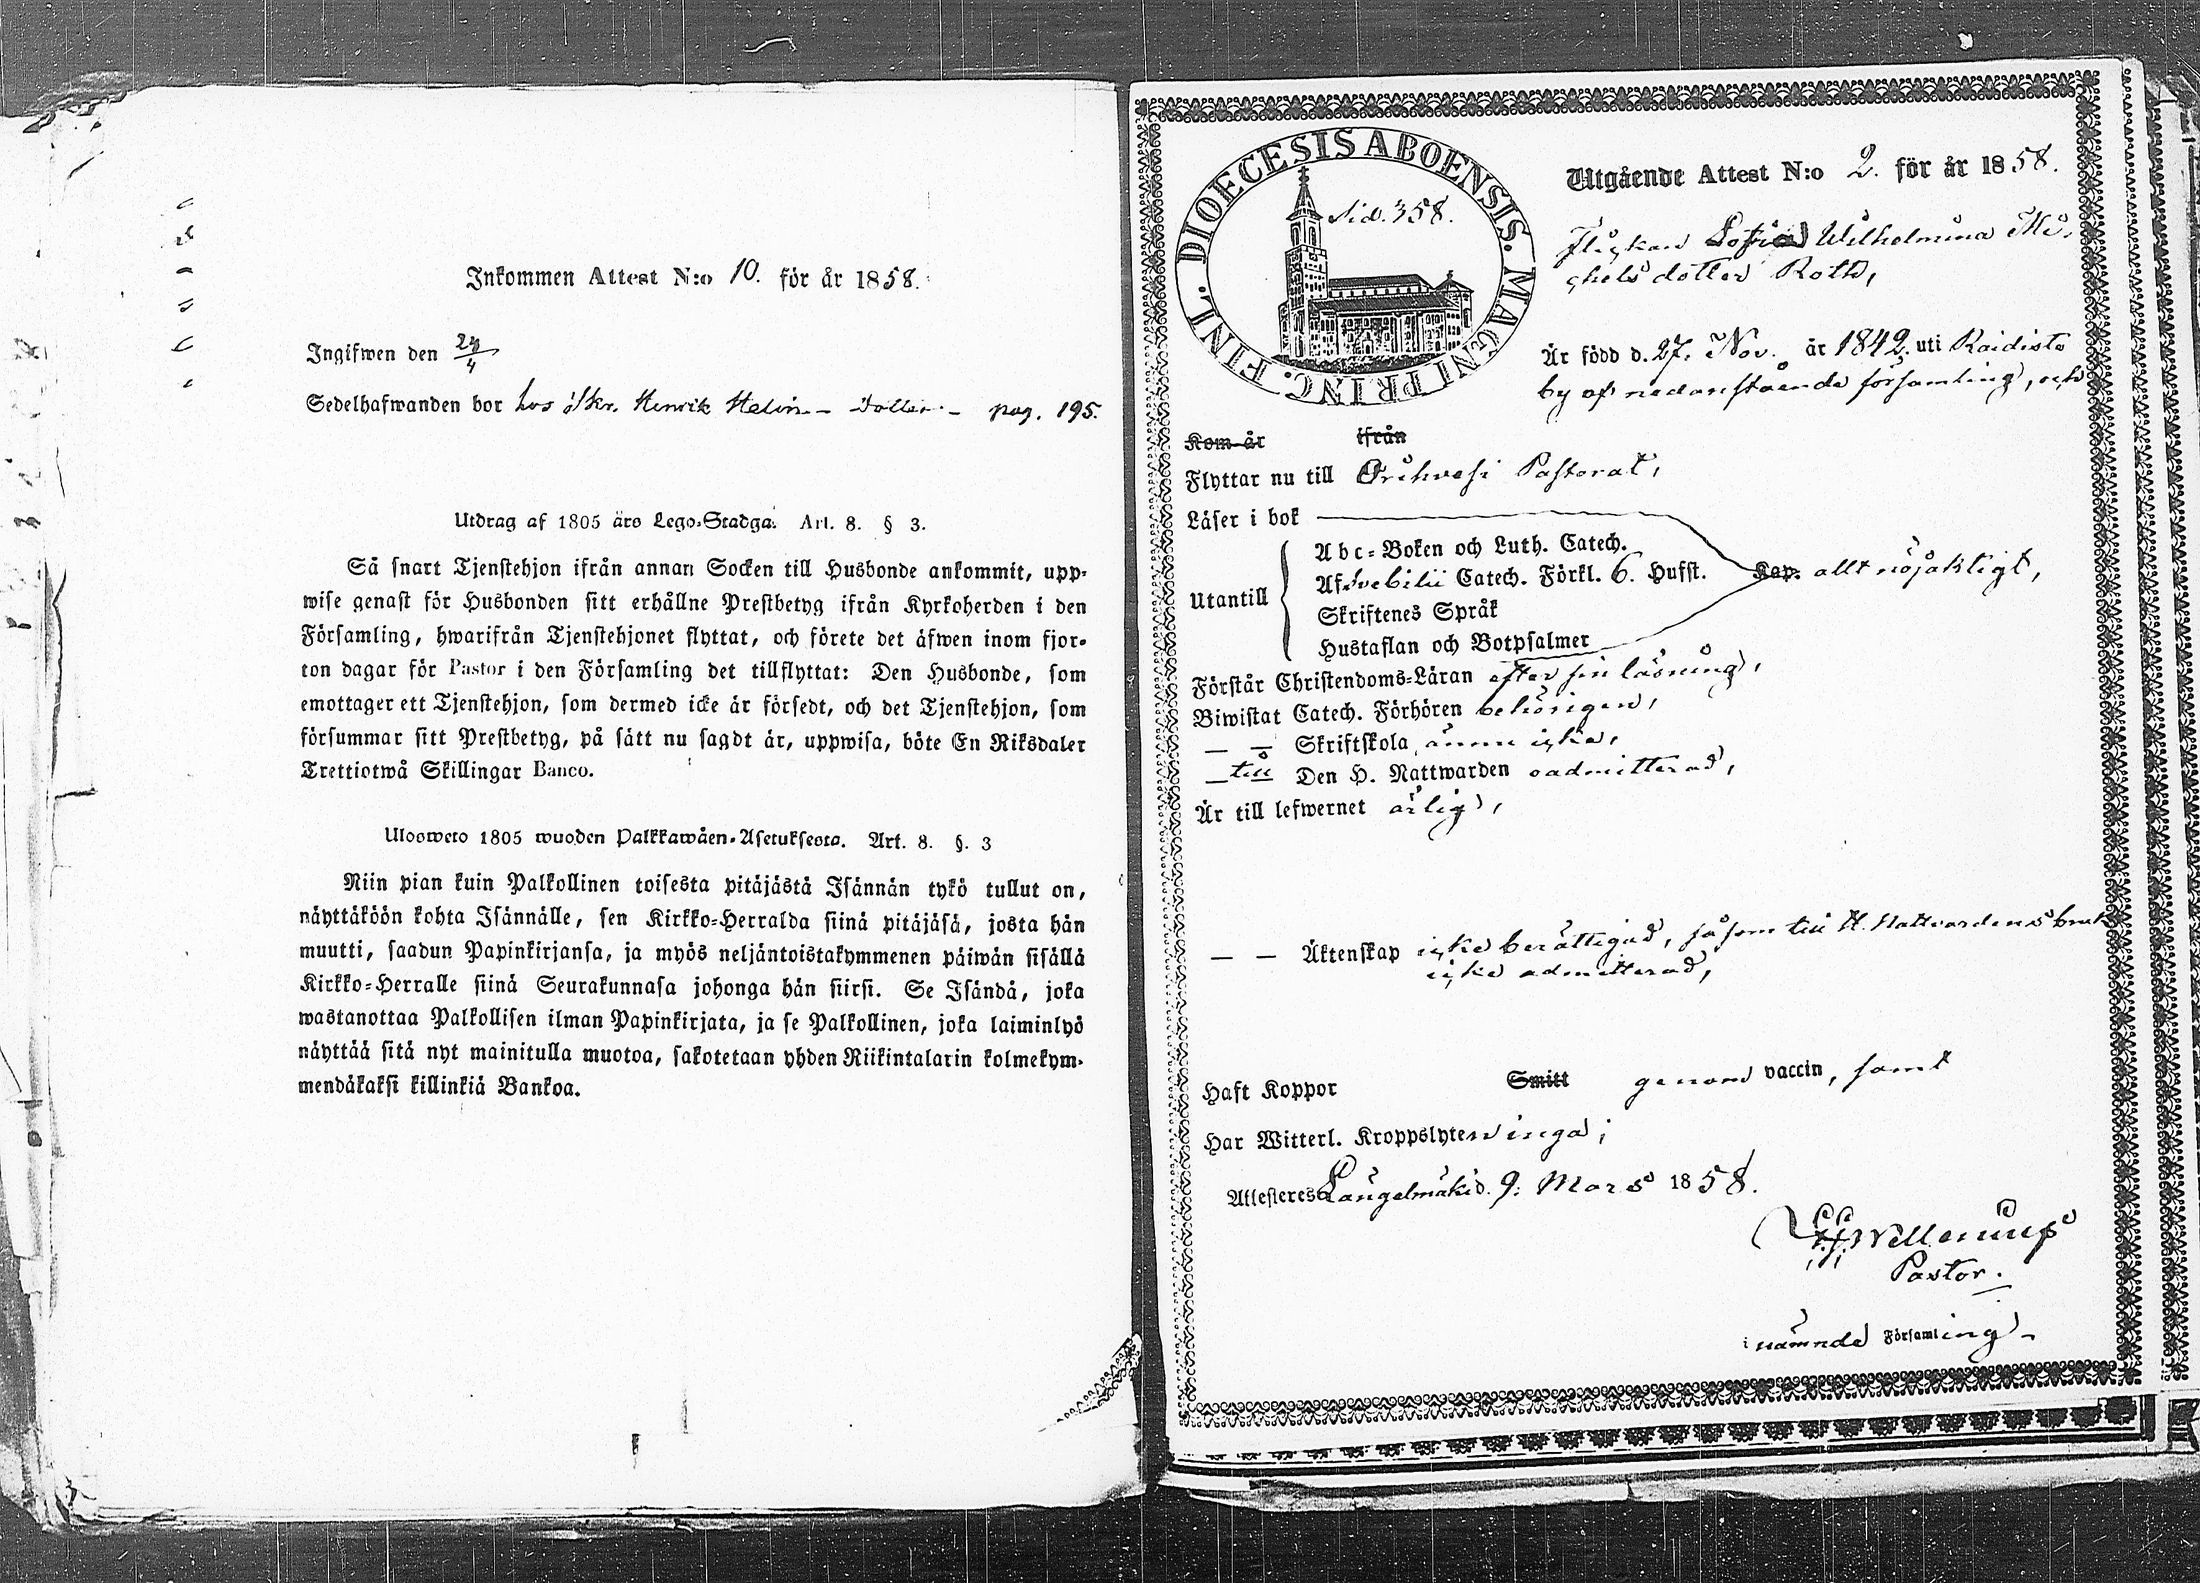 Inkommen Attest N:o 10. för år 1858.
Ingifwen den 24/4
Sedelhafwanden bor hos Skr. Henrik Helin pag. 195.
Utdrag af 1805 års Lego-Stadga. Art. 8. § 3.
Så snart Tjenstehjon ifrån annan Socken till Husbonde ankommit, upp-
wise genast för Husbonden sitt erhållne Prestbetyg ifrån Kyrkoherden i den
Församling, hwarifrån Tjenstehjonet flyttat, och förete det äfwen inom fjor-
ton dagar för Pastor i den Församling det tillflyttat: Den Husbonde, som
emottager ett Tjenstehjon, som dermed icke är försedt, och det Tjenstehjon, som
försummar sitt Prestbetyg, på sätt nu sagdt är, uppwisa, böte En Riksdaler
Trettiotwå Skillingar Banco.
Ulosweto 1805 wuoden Palkkawäen-Asetuksesta. Art. 8. §. 3
Niin pian kuin Palkollinen toisesta pitäjästä Isännän tykö tullut on,
näyttäköön kohta Isännälle, sen Kirkko-Herralda siinä pitäjäsä, josta hän
muutti, saadun Papinkirjansa, ja myös neljäntoistakymmenen päiwän sisällä
Kirkko-Herralle siinä Seurakunnasa johonga hän siirsi. Se Isändä, joka
wastanottaa Palkollisen ilman Papinkirjata, ja se Palkollinen, joka laiminlyö
näyttää sitä nyt mainitulla muotoa, sakotetaan yhden Riikintalarin kolmekym-
mendäkaksi killinkiä Bankoa.
DIOECESIS ABOENSIS. MAGNI PRINC. FINL.
Sid. 358.
Utgående Attest N:o 2. för år 1858.
Flickan Sofia Wilhelmina Mi-
chelsdotter Roth,
Är född d. 27. Nov. år 1842. uti Raidisto
by af nedanstående församling, och
Kom år ifrån
Flyttar nu till Orihvesi Pastorat,
Läser i bok
Utantill
Abc-Boken och Luth. Catech.
Af Svebilii Catech. Förkl. 6. Hufst. Kap. allt nöjaktigt,
Skriftenes Språk
Hustaflan och Botpsalmer
Förstår Christendoms-Läran efter sin läsning,
Biwistat Catech. Förhören behörigen,
— — Skriftskola ännu icke,
— till Den H. Nattwarden oadmitterad,
Är till lefwernet ärlig,
— — Äktenskap icke berättigad, såsom till H. Nattvardens bruk
icke admitterad,
Haft Koppor Smitt genom vaccin, samt
Har Witterl. Kroppslyten inga;
Attesteres Längelmäki d. 9. Mars 1858.
Pastor.
i nämnde Församling